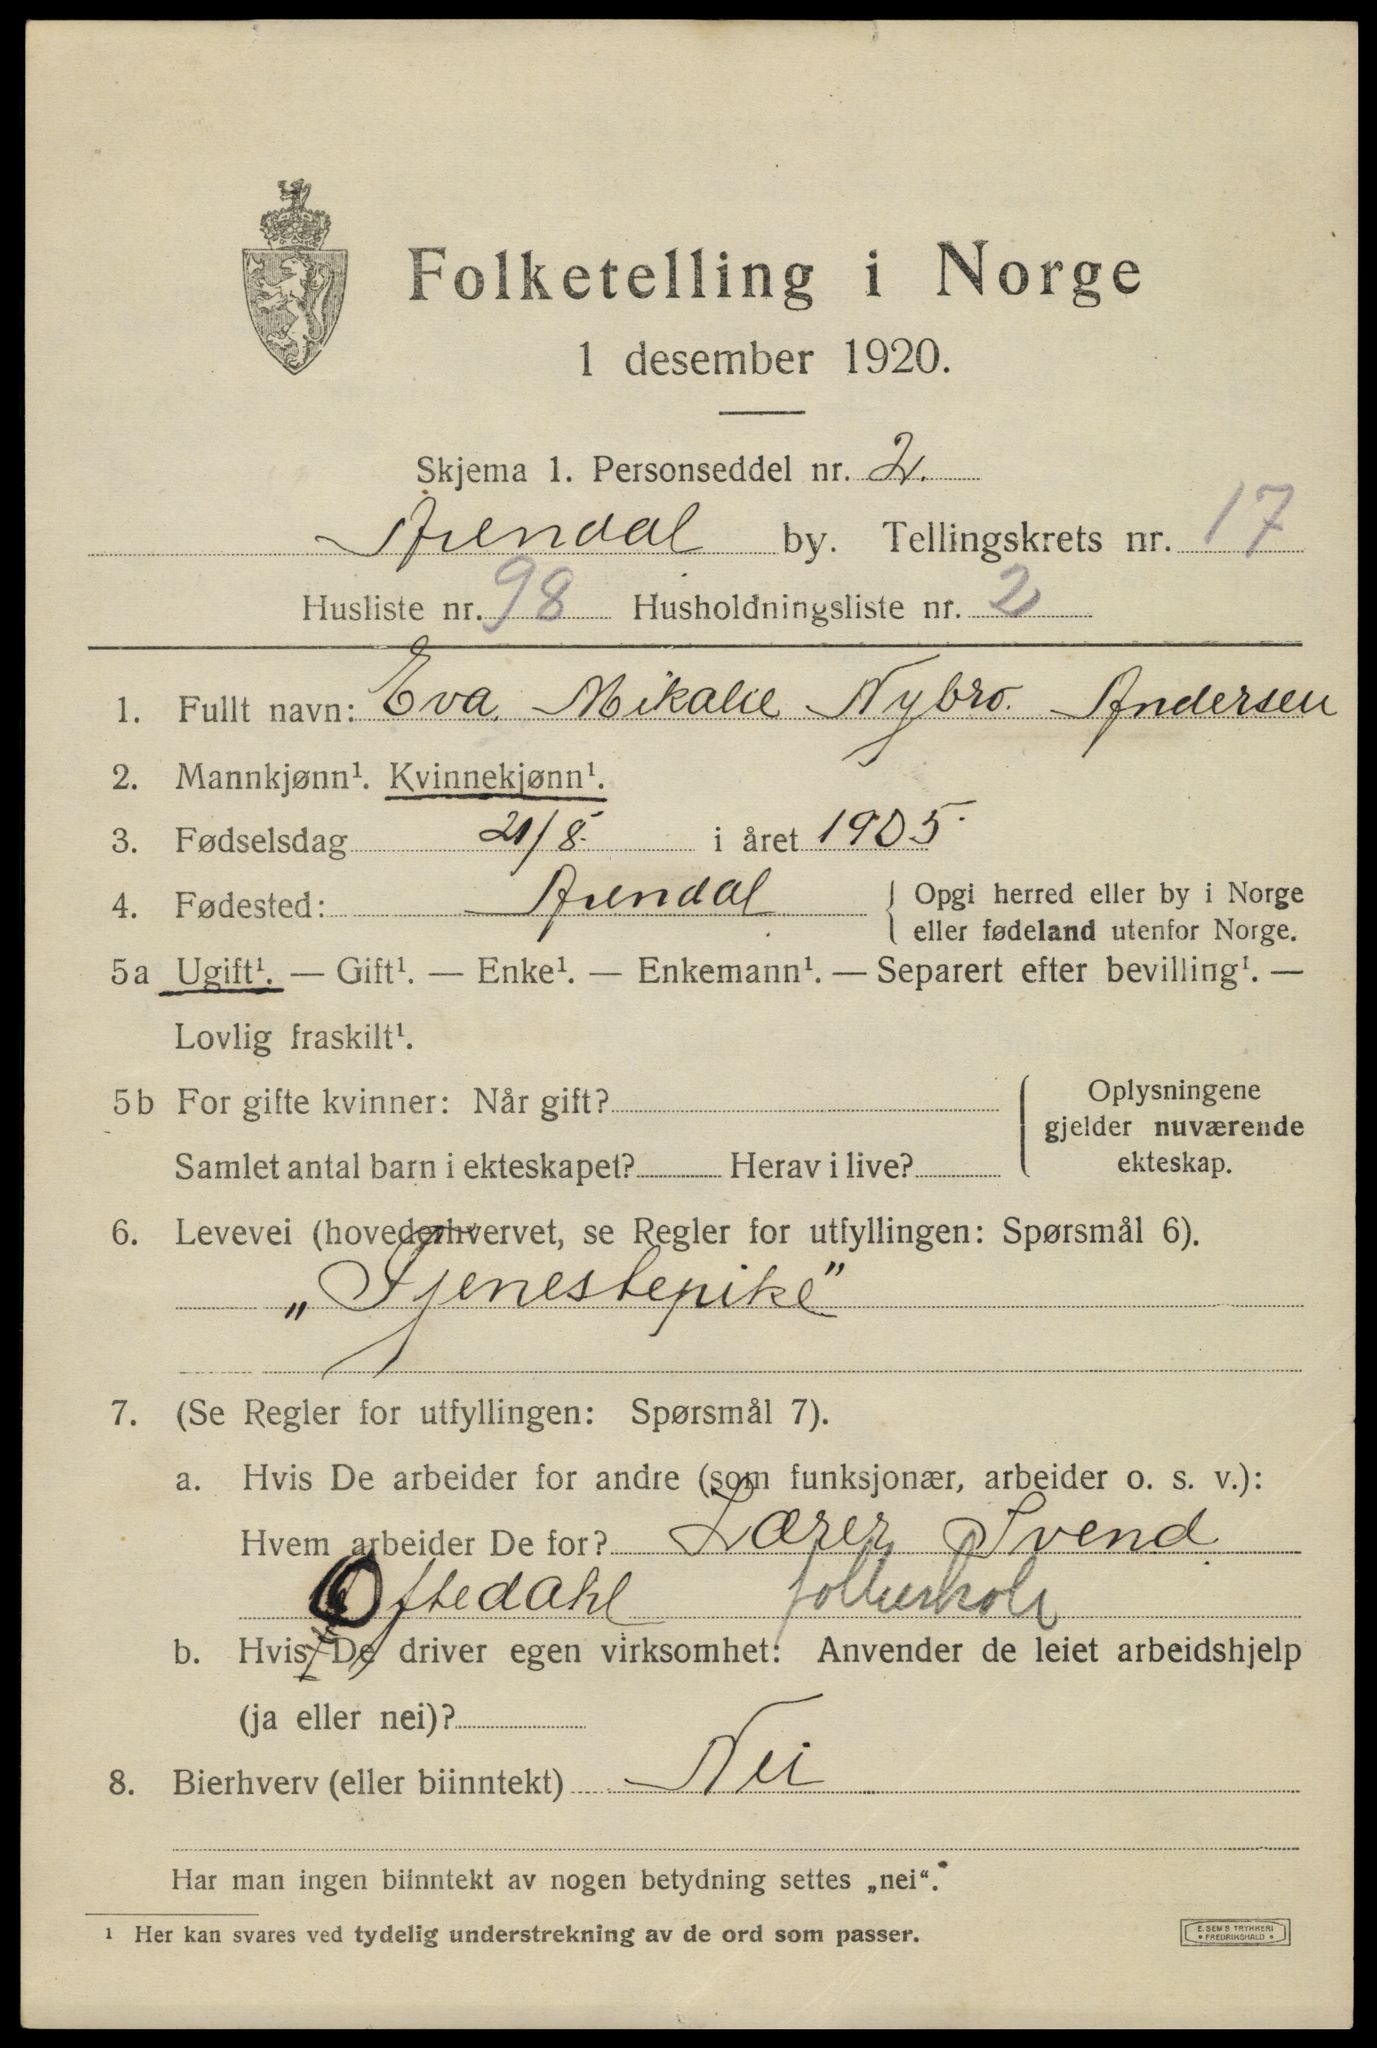 Folketelling i Norge
1 desember 1920.
Skjema 1. Personseddel nr. 2.
Arendal by. Tellingskrets nr. 17
Husliste nr. 98 Husholdningsliste nr. 2
1. Fullt navn: Eva Mikalie Nybro. Andersen
2. Mannkjønn¹. Kvinnekjønn¹.
3. Fødselsdag 21/8. i året 1905.
4. Fødested: Arendal { Opgi herred eller by i Norge
eller fødeland utenfor Norge.
5a Ugift¹. — Gift¹. — Enke¹. — Enkemann¹. — Separert efter bevilling¹. —
Lovlig fraskilt¹.
5b For gifte kvinner: Når gift?
Samlet antal barn i ekteskapet? Herav i live?
Oplysningene
gjelder nuværende
ekteskap.
6. Levevei (hovederhvervet, se Regler for utfyllingen: Spørsmål 6).
„Tjenestepike”
7. (Se Regler for utfyllingen: Spørsmål 7).
a. Hvis De arbeider for andre (som funksjonær, arbeider o. s. v.):
Hvem arbeider De for? Lærer Svend
Oftedahl folkeskole
b. Hvis De driver egen virksomhet: Anvender de leiet arbeidshjelp
(ja eller nei)?
8. Bierhverv (eller biinntekt) Nei
Har man ingen biinntekt av nogen betydning settes „nei“.
¹ Her kan svares ved tydelig understrekning av de ord som passer.
E. SEM'S TRYKKERI
FREDRIKSHALD